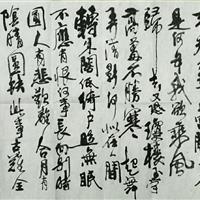 是何年我欲乘风
歸去又恐瓊樓玉宇
高處不勝寒起舞
弄清影何似在人間
轉朱閣低綺户照無眠
不應有恨何事長向別時
圆人有悲歡離合月有
陰晴圓缺此事古難全